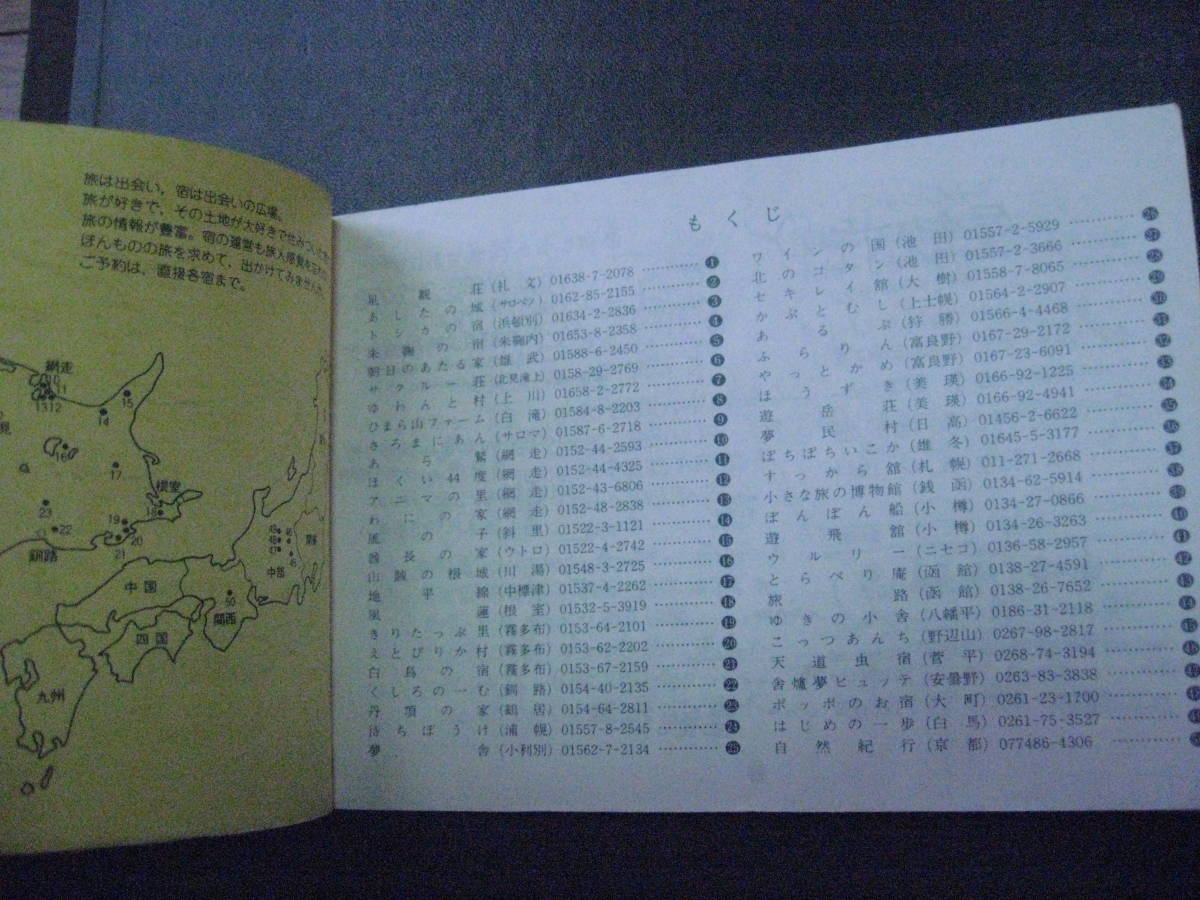 旅は出会い，宿は出会いの広場。
旅が好きで，その土地が大好きで住みつい
旅の情報が豊富。宿の運営も旅人感覚を
ほんものの旅を求めて，出かけてみません
ご予約は，直接各宿まで。
網走
11
1312
14
15
16
17
根室
18
19
20
21
22
23
釧路
中国
四国
九州
関西
50
中部
もくじ
星観荘（礼文）01638-7-2078 ………… 1
あしたの城（サロベツ）0162-85-2155 ………… 2
トシカの宿（浜頓別）01634-2-2836 ………… 3
朱鞠の宿（朱鞠内）01653-8-2358 ………… 4
朝日のあたる家（雄武）01588-6-2450 ………… 5
サクルー荘（北見滝上）0158-29-2769 ………… 6
ゆわんと村（上川）01658-2-2772 ………… 7
ひまら山ファーム（白滝）01584-8-2203 ………… 8
さろまにあん（サロマ）01587-6-2718 ………… 9
あら鷲（網走）0152-44-2593 ………… 10
ほくい44度（網走）0152-44-4325 ………… 11
アニマの里（網走）0152-43-6806 ………… 12
わにの家（網走）0152-48-2838 ………… 13
風の子（斜里）01522-3-1121 ………… 14
酋長の家（ウトロ）01522-4-2742 ………… 15
山賊の根城（川湯）01548-3-2725 ………… 16
地平線（中標津）01537-4-2262 ………… 17
風蓮（根室）01532-5-3919 ………… 18
きりたっぷ里（霧多布）0153-64-2101 ………… 19
えとぴりか村（霧多布）0153-62-2202 ………… 20
白鳥の宿（霧多布）0153-67-2159 ………… 21
くしろのーむ（釧路）0154-40-2135 ………… 22
丹頂の家（鶴居）0154-64-2811 ………… 23
待ちぼうけ（浦幌）01557-8-2545 ………… 24
夢舎（小利別）01562-7-2134 ………… 25
ワインの国（池田）01557-2-5929 ………… 26
北のコタン（池田）01557-2-3666 ………… 27
セキレイ館（大樹）01558-7-8065 ………… 28
かぶとむし（上士幌）01564-2-2907 ………… 29
あるぷ（狩勝）01566-4-4468 ………… 30
ふらりん（富良野）0167-29-2172 ………… 31
やっとかめ（富良野）0167-23-6091 ………… 32
ほうずき（美瑛）0166-92-1225 ………… 33
遊岳荘（美瑛）0166-92-4941 ………… 34
夢民村（日高）01456-2-6622 ………… 35
ぼちぼちいこか（雄冬）01645-5-3177 ………… 36
すっから館（札幌）011-271-2668 ………… 37
小さな旅の博物館（銭函）0134-62-5914 ………… 38
ぽんぽん船（小樽）0134-27-0866 ………… 39
遊飛館（小樽）0134-26-3263 ………… 40
ウルリー（ニセコ）0136-58-2957 ………… 41
とらべり庵（函館）0138-27-4591 ………… 42
旅路（函館）0138-26-7652 ………… 43
ゆきの小舎（八幡平）0186-31-2118 ………… 44
こっつあんち（野辺山）0267-98-2817 ………… 45
天道虫宿（菅平）0268-74-3194 …………
舎爐夢ヒュッテ（安曇野）0263-83-3838 …………
ポッポのお宿（大町）0261-23-1700 …………
はじめの一歩（白馬）0261-75-3527 …………
自然紀行（京都）077486-4306 …………